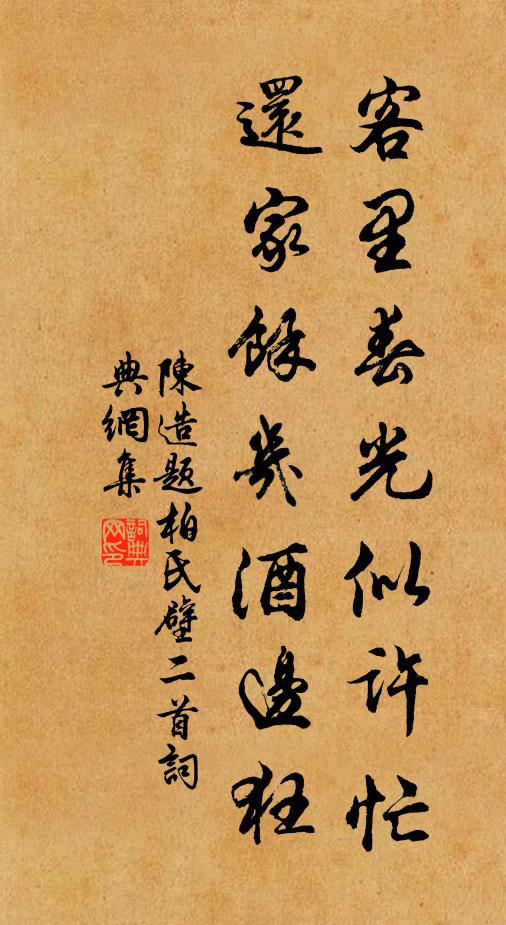 客里春光似許忙
還家餘幾酒邊狂
陳造題柏氏壁二首詞
典網集
詞典
网印